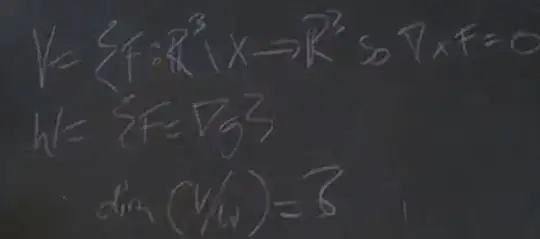 V = {F: ℝ³\X → ℝ³ so ∇×F = 0
W = {F = ∇g}
dim (V/W) = 8